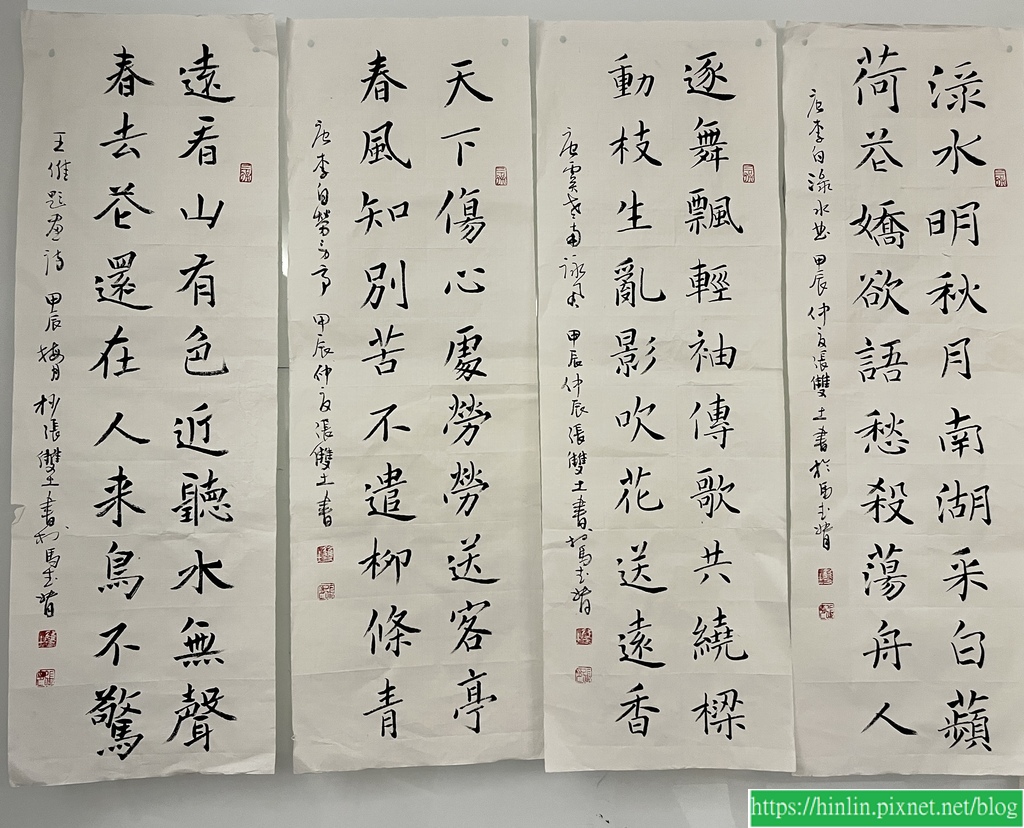 渌水明秋月南湖采白蘋
荷花嬌欲語愁殺蕩舟人
唐李白渌水曲 甲辰仲夏張雙土書於馬武督
逐舞飄輕袖傳歌共繞樑
動枝生亂影吹花送遠香
唐虞世南詠風 甲辰仲辰張雙土書於馬武督
天下傷心處勞勞送客亭
春風知別苦不遣柳條青
唐李白勞勞亭 甲辰仲夏張雙土書
遠看山有色近聽水無聲
春去花還在人來鳥不驚
王維題畫詩 甲辰梅月杪張雙土書於馬武督
https://hinlin.pixnet.net/blog